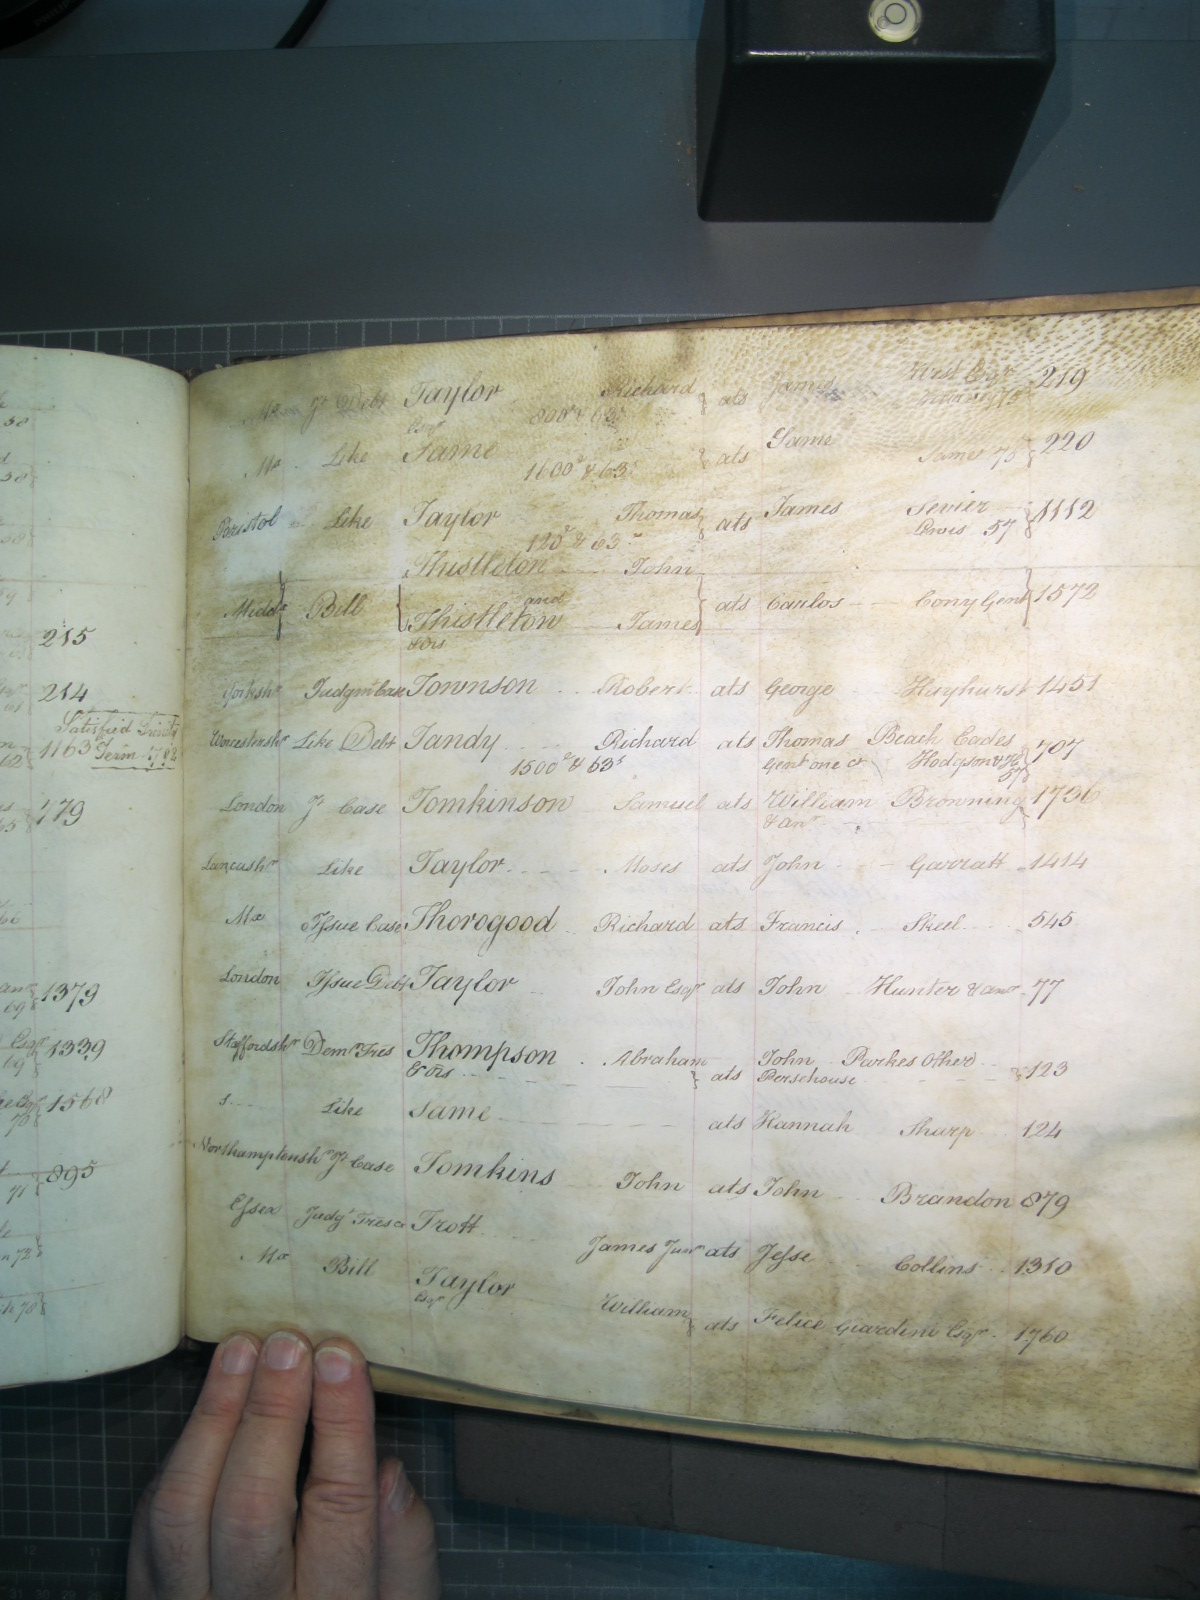 Mx Jt Debt Taylor Richard ats James West Esqr 219
Esqr 800£ & 63s
Mx Like Same ats Same Same 75 220
1600£ & 63s
Bristol Like Taylor Thomas ats James Sevier 1112
120£ & 63s Lewis 57
Thistleton John
and
Middx Bill Thistleton James ats Carlos Cony Gent 1572
& Ors
Yorkshr Judgmt Case Townson Robert ats George Huyhurst 1451
Worcestershr Like Debt Tandy Richard ats Thomas Beach Eades 707
1500£ & 63s Gent one &c Hodgson
57
London Jt Case Tomkinson Samuel ats William Browning 1736
& anr
Lancashr Like Taylor Moses ats John Garratt 1414
Mx Issue Case Thorogood Richard ats Francis Skeel 545
London Issue Debt Taylor John Esqr ats John Hunter & anor 77
Staffordshr Demr Tres Thompson Abraham ats John Parkes Other 123
& Ors Persehouse
S Like Same ats Hannah Sharp 124
Northamptonshr Jt Case Tomkins John ats John Brandon 879
Essex Judgt Tresc Trott James Junr ats Jesse Collins 1310
Mx Bill Taylor William ats Felice Giardini Esqr 1760
Esqr
215
214
Satisfied Trinity
1163 Term 1782
179
1379
1339
1568
895